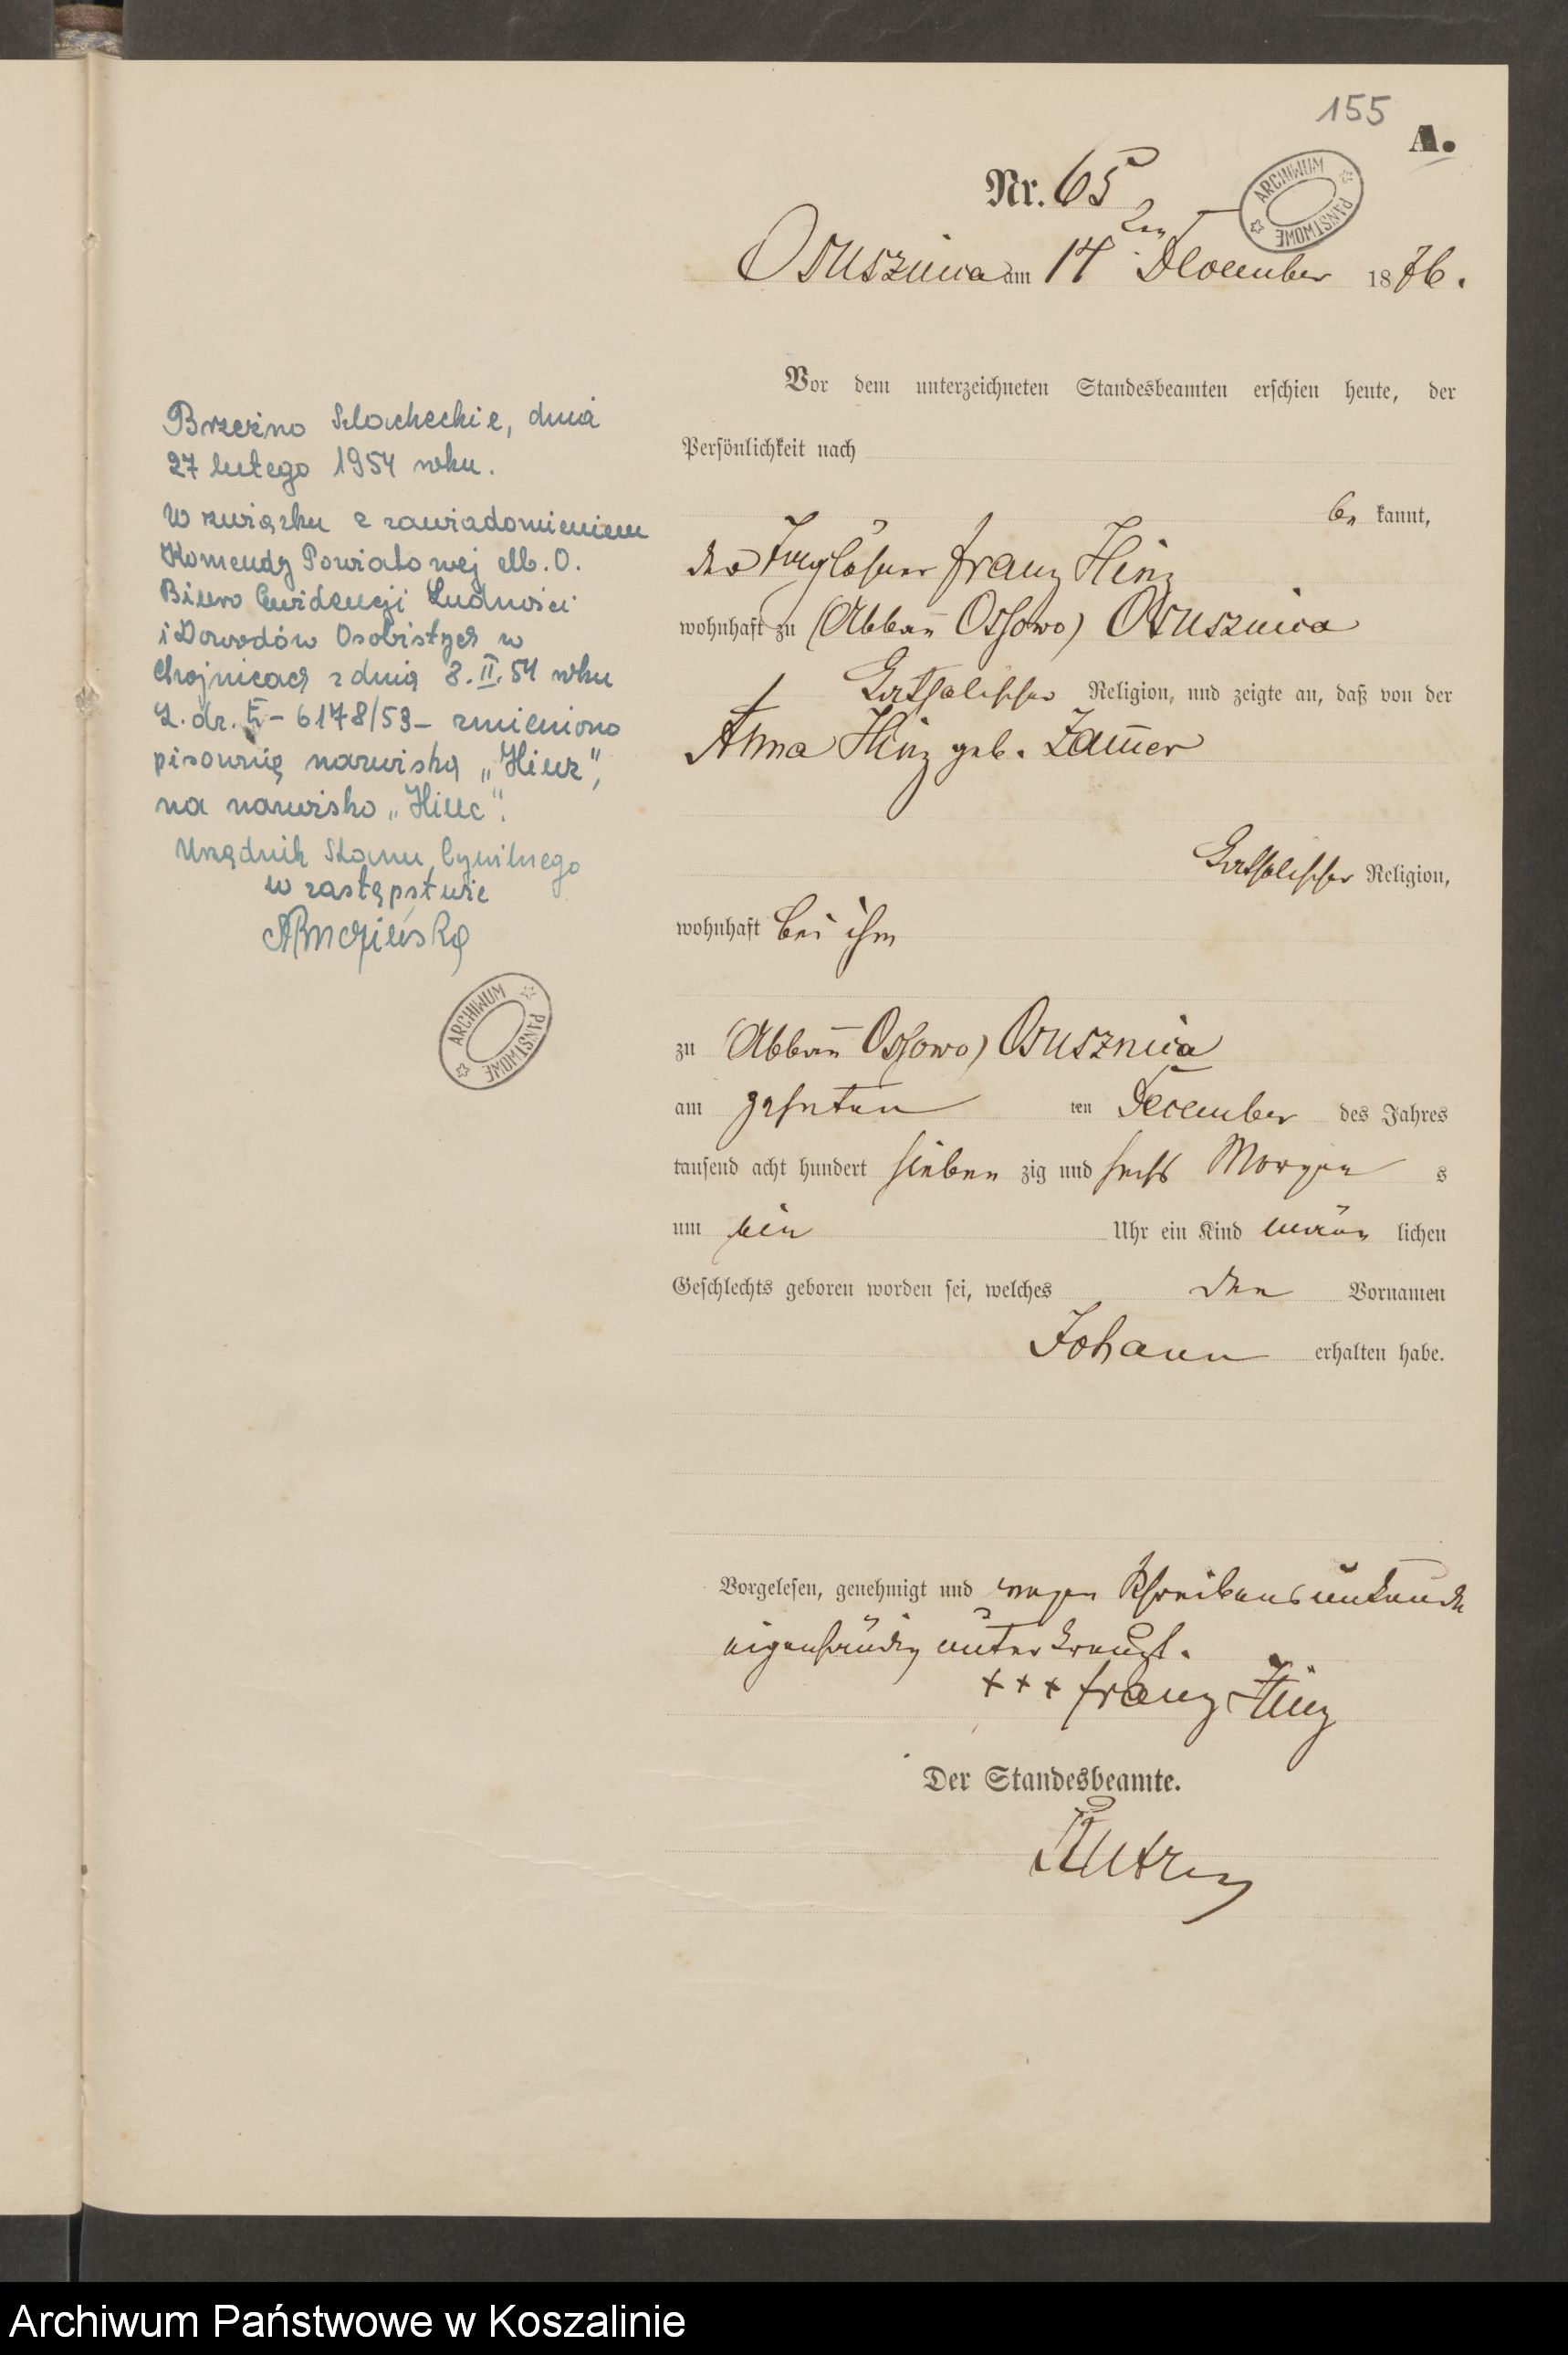 155
A.
Nr. 65
ARCHIWUM PAŃSTWOWE
Osusznica am 14ten December 1876.
Vor dem unterzeichneten Standesbeamten erschien heute, der
Persönlichkeit nach
be kannt,
der Tagelöhner Franz Hinz
wohnhaft zu (Abbau Ossowo) Osusznica
katholischer Religion, und zeigte an, daß von der
Anna Hinz geb.
katholischer Religion,
wohnhaft bei ihm
zu (Abbau Ossowo) Osusznica
am zehnten ten December des Jahres
tausend acht hundert sieben zig und sechs Morgen s
um ein Uhr ein Kind männ lichen
Geschlechts geboren worden sei, welches den Vornamen
Johann erhalten habe.
Vorgelesen, genehmigt und wegen Schreibensunkunde
eigenhändig unterkreuzt.
+++ Franz Hinz
Der Standesbeamte.
Brzeźno Szlacheckie, dnia
27 lutego 1954 roku.
W związku z zawiadomieniem
Komendy Powiatowej M.O.
Biuro Ewidencji Ludności
i Dowodów Osobistych w
Chojnicach z dnia 8.II.54 roku
L.dz. E-6178/53- zmieniono
pisownię nazwiska „Hinz",
na nazwisko „Hinc".
Urzędnik Stanu Cywilnego
w zastępstwie
ARCHIWUM PAŃSTWOWE
Archiwum Państwowe w Koszalinie